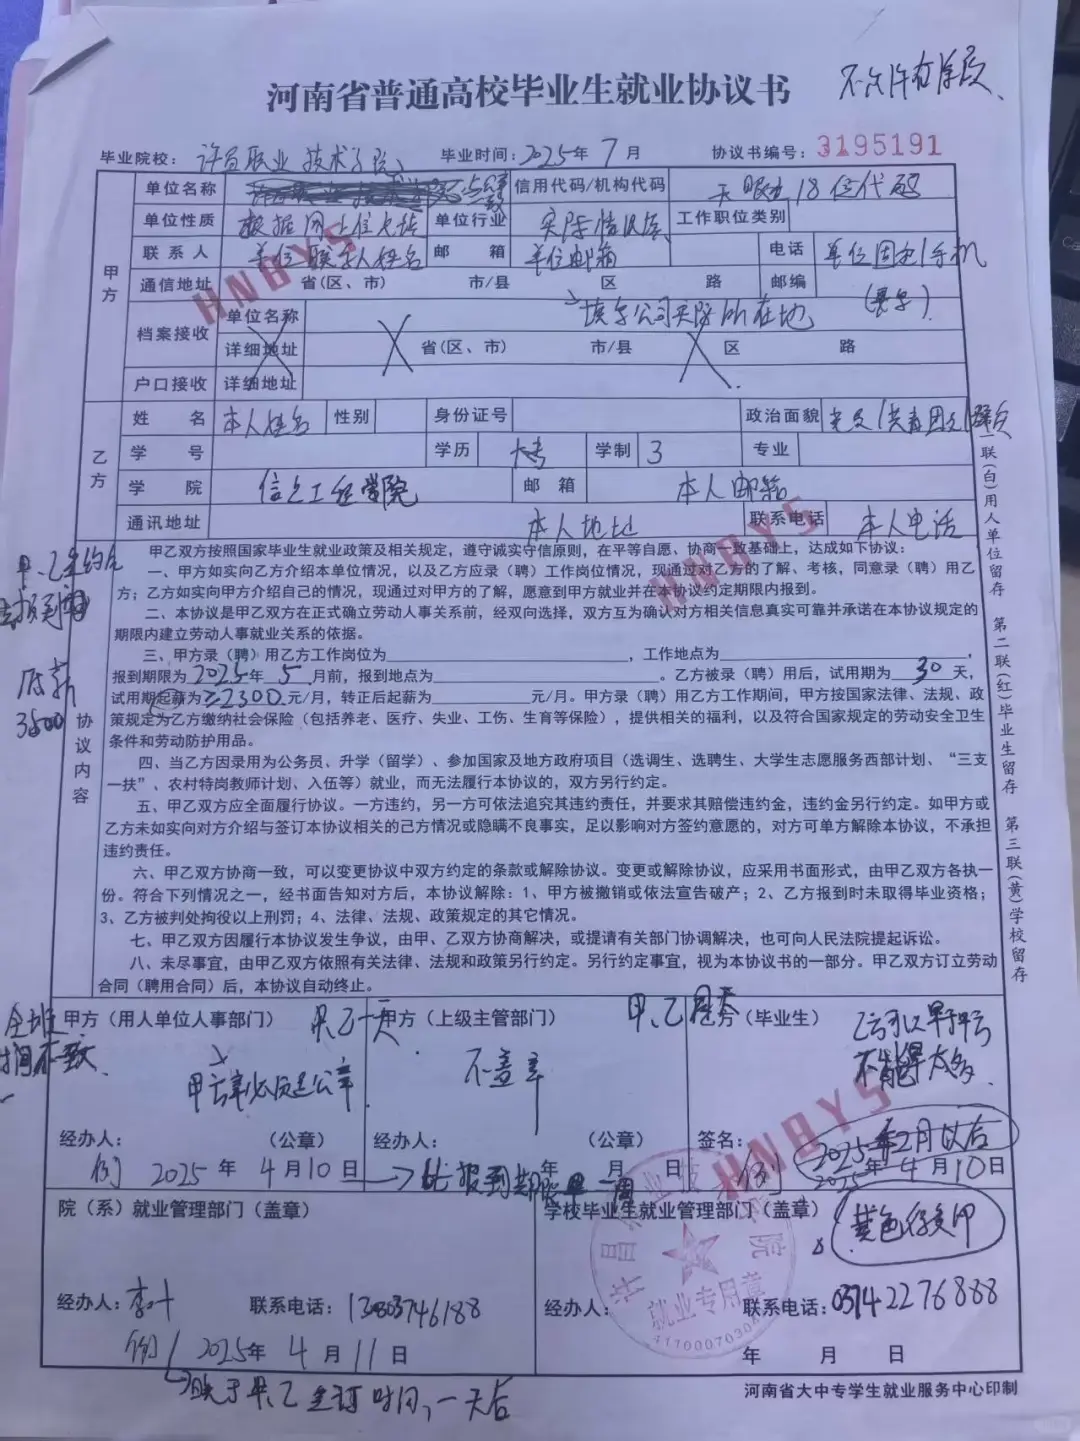 河南省普通高校毕业生就业协议书
不允许有涂改、
毕业院校：许昌职业技术学院 毕业时间：2025年7月 协议书编号：3195191
甲方
单位名称 信用代码/机构代码 天眼查18位代码
单位性质 根据网上信息填 单位行业 实际情况填 工作职位类别
联系人 单位联系人姓名 邮箱 单位邮箱 电话 单位固电/手机
通信地址 省(区、市) 市/县 区 路 邮编
填写公司实际所在地
档案接收 单位名称
详细地址 省(区、市) 市/县 区 路
户口接收 详细地址
乙方
姓名 本人姓名 性别 身份证号 政治面貌 党员/共青团员/群众
学号 学历 大专 学制 3 专业
学院 信息工程学院 邮箱 本人邮箱
通讯地址 本人地址 联系电话 本人电话
协议内容
甲乙双方按照国家毕业生就业政策及相关规定，遵守诚实守信原则，在平等自愿、协商一致基础上，达成如下协议：
一、甲方如实向乙方介绍本单位情况，以及乙方应录（聘）工作岗位情况，现通过对乙方的了解、考核，同意录（聘）用乙
方；乙方如实向甲方介绍自己的情况，现通过对甲方的了解，愿意到甲方就业并在本协议约定期限内报到。
二、本协议是甲乙双方在正式确立劳动人事关系前，经双向选择，双方互为确认对方相关信息真实可靠并承诺在本协议规定的
期限内建立劳动人事就业关系的依据。
三、甲方录（聘）用乙方工作岗位为，工作地点为，
报到期限为2025年5月前，报到地点为。乙方被录（聘）用后，试用期为30天，
试用期起薪为≥2300元/月，转正后起薪为元/月。甲方录（聘）用乙方工作期间，甲方按国家法律、法规、政
策规定为乙方缴纳社会保险（包括养老、医疗、失业、工伤、生育等保险），提供相关的福利，以及符合国家规定的劳动安全卫生
条件和劳动防护用品。
四、当乙方因录用为公务员、升学（留学）、参加国家及地方政府项目（选调生、选聘生、大学生志愿服务西部计划、“三支
一扶”、农村特岗教师计划、入伍等）就业，而无法履行本协议的，双方另行约定。
五、甲乙双方应全面履行协议。一方违约，另一方可依法追究其违约责任，并要求其赔偿违约金，违约金另行约定。如甲方或
乙方未如实向对方介绍与签订本协议相关的己方情况或隐瞒不良事实，足以影响对方签约意愿的，对方可单方解除本协议，不承担
违约责任。
六、甲乙双方协商一致，可以变更协议中双方约定的条款或解除协议。变更或解除协议，应采用书面形式，由甲乙双方各执一
份。符合下列情况之一，经书面告知对方后，本协议解除：1、甲方被撤销或依法宣告破产；2、乙方报到时未取得毕业资格；
3、乙方被判处拘役以上刑罚；4、法律、法规、政策规定的其它情况。
七、甲乙双方因履行本协议发生争议，由甲、乙双方协商解决，或提请有关部门协调解决，也可向人民法院提起诉讼。
八、未尽事宜，由甲乙双方依照有关法律、法规和政策另行约定。另行约定事宜，视为本协议书的一部分。甲乙双方订立劳动
合同（聘用合同）后，本协议自动终止。
底薪
3500
第一联(白)用人单位留存 第二联(红)毕业生留存 第三联(黄)学校留存
甲方（用人单位人事部门） 甲乙一天 甲方（上级主管部门） 乙方（毕业生）
甲方章必须是公章 不盖章
乙方可以早于甲方
不能早太多
经办人： （公章） 经办人： （公章） 签名：
2025年2月以后
例 2025年4月10日 比报到期限早一周 年 月 日 例 2025年4月10日
院（系）就业管理部门（盖章） 学校毕业生就业管理部门（盖章）
黄色仔复印
经办人：李叶 联系电话：13803746188 经办人： 联系电话：03742276888
例 2025年4月11日 年 月 日
晚于甲、乙签订时间，一天后
河南省大中专学生就业服务中心印制
HNBYS
HNBYS
HNBYS
许昌职业技术学院
就业专用章